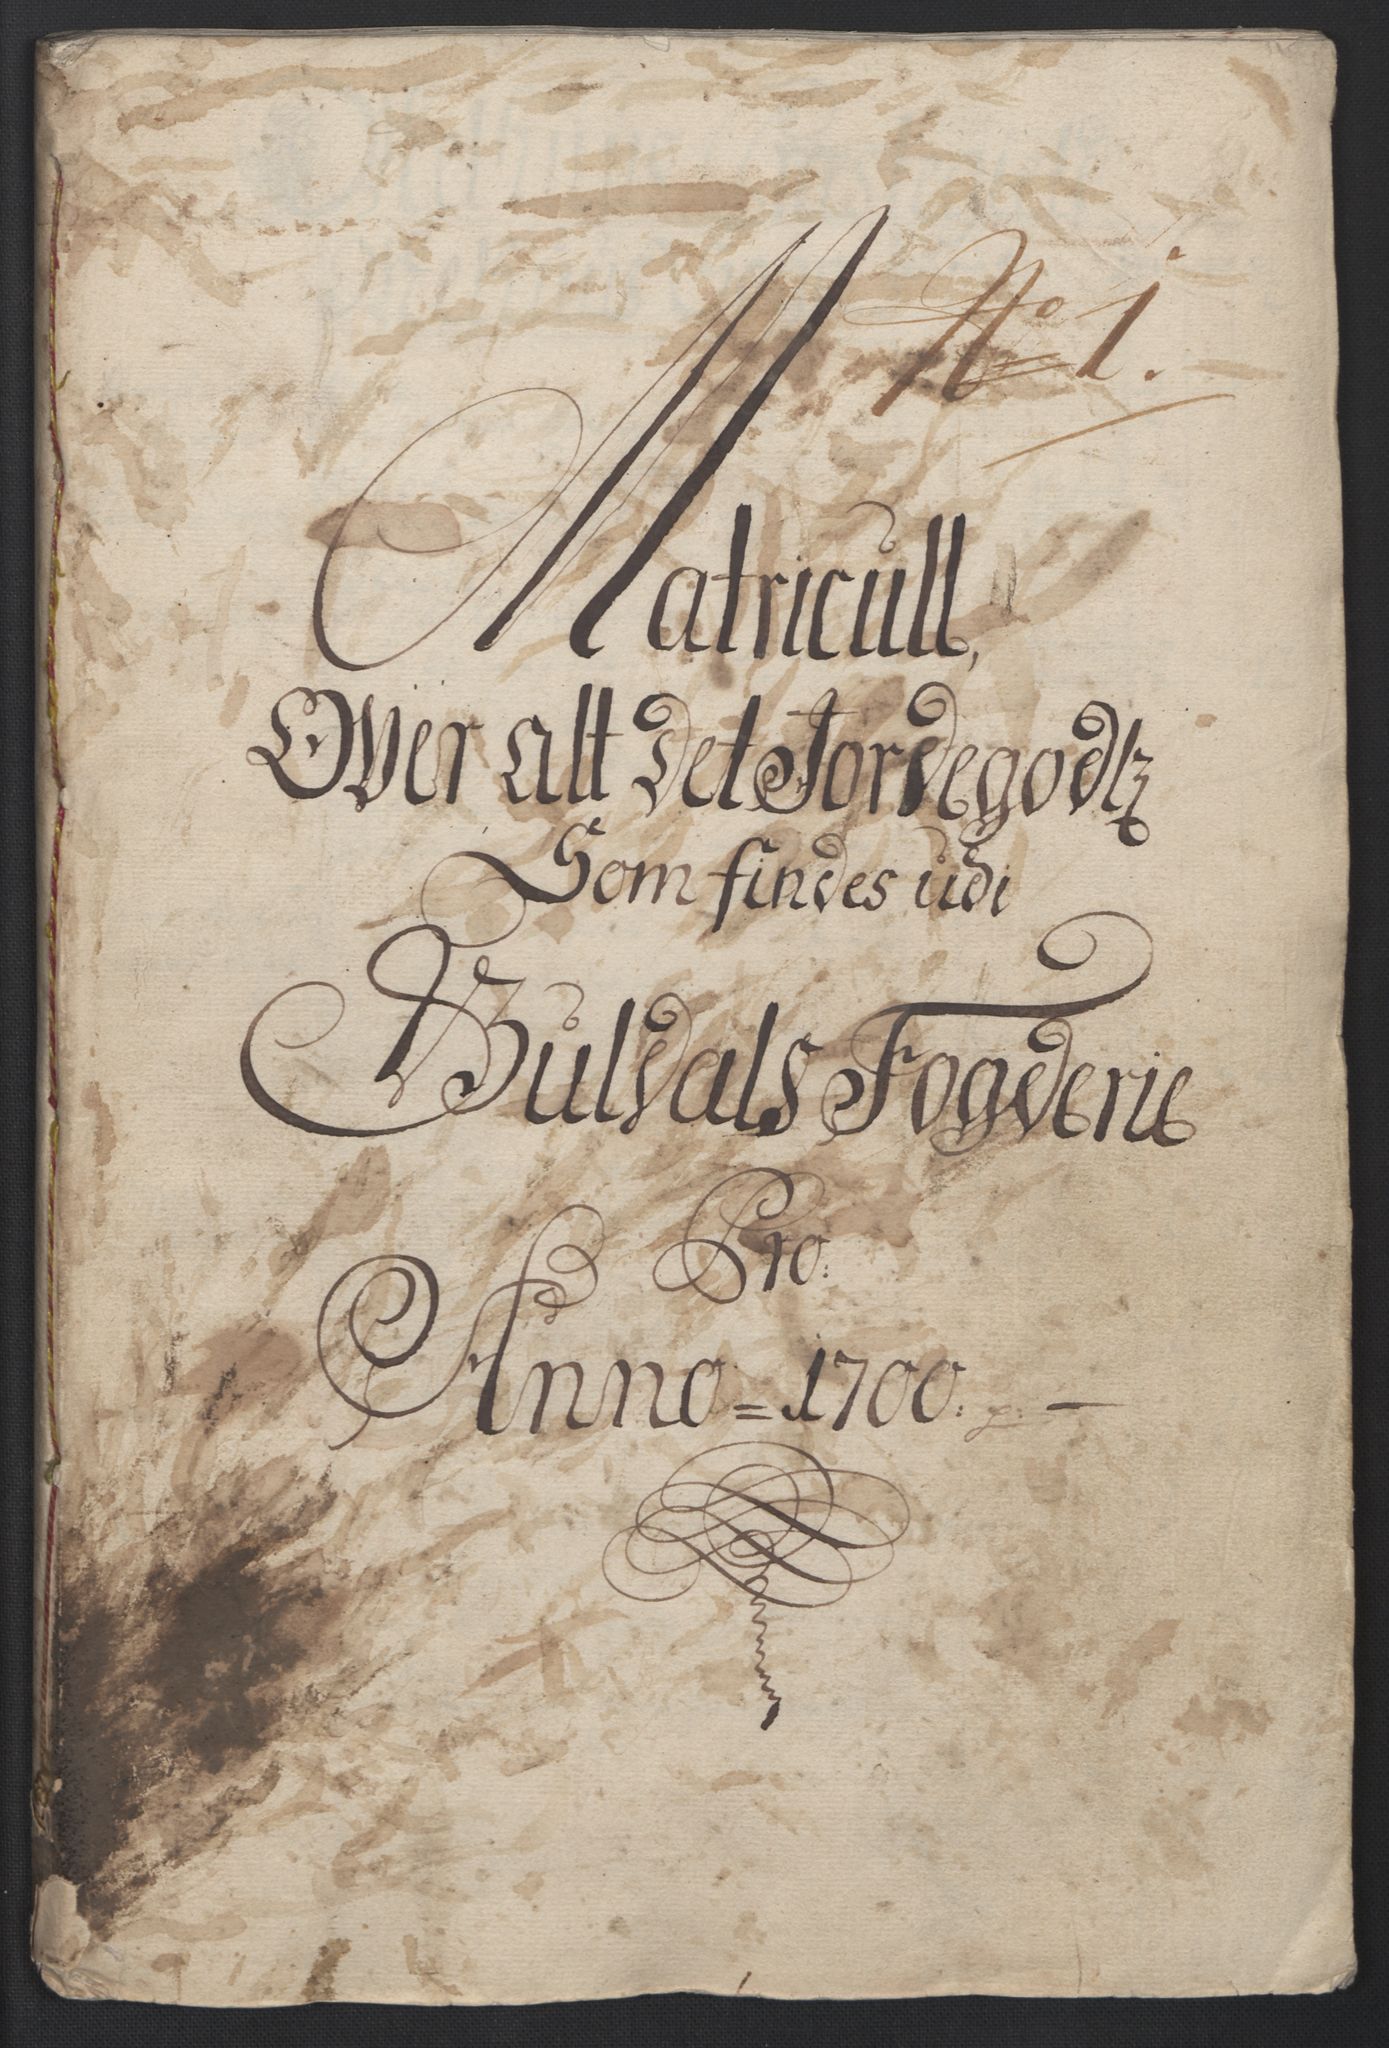 No 1.
Matricull,
Over alt det Jordegodtz
Som findes udi
Guldals Fogderie
Pro:
Anno = 1700.